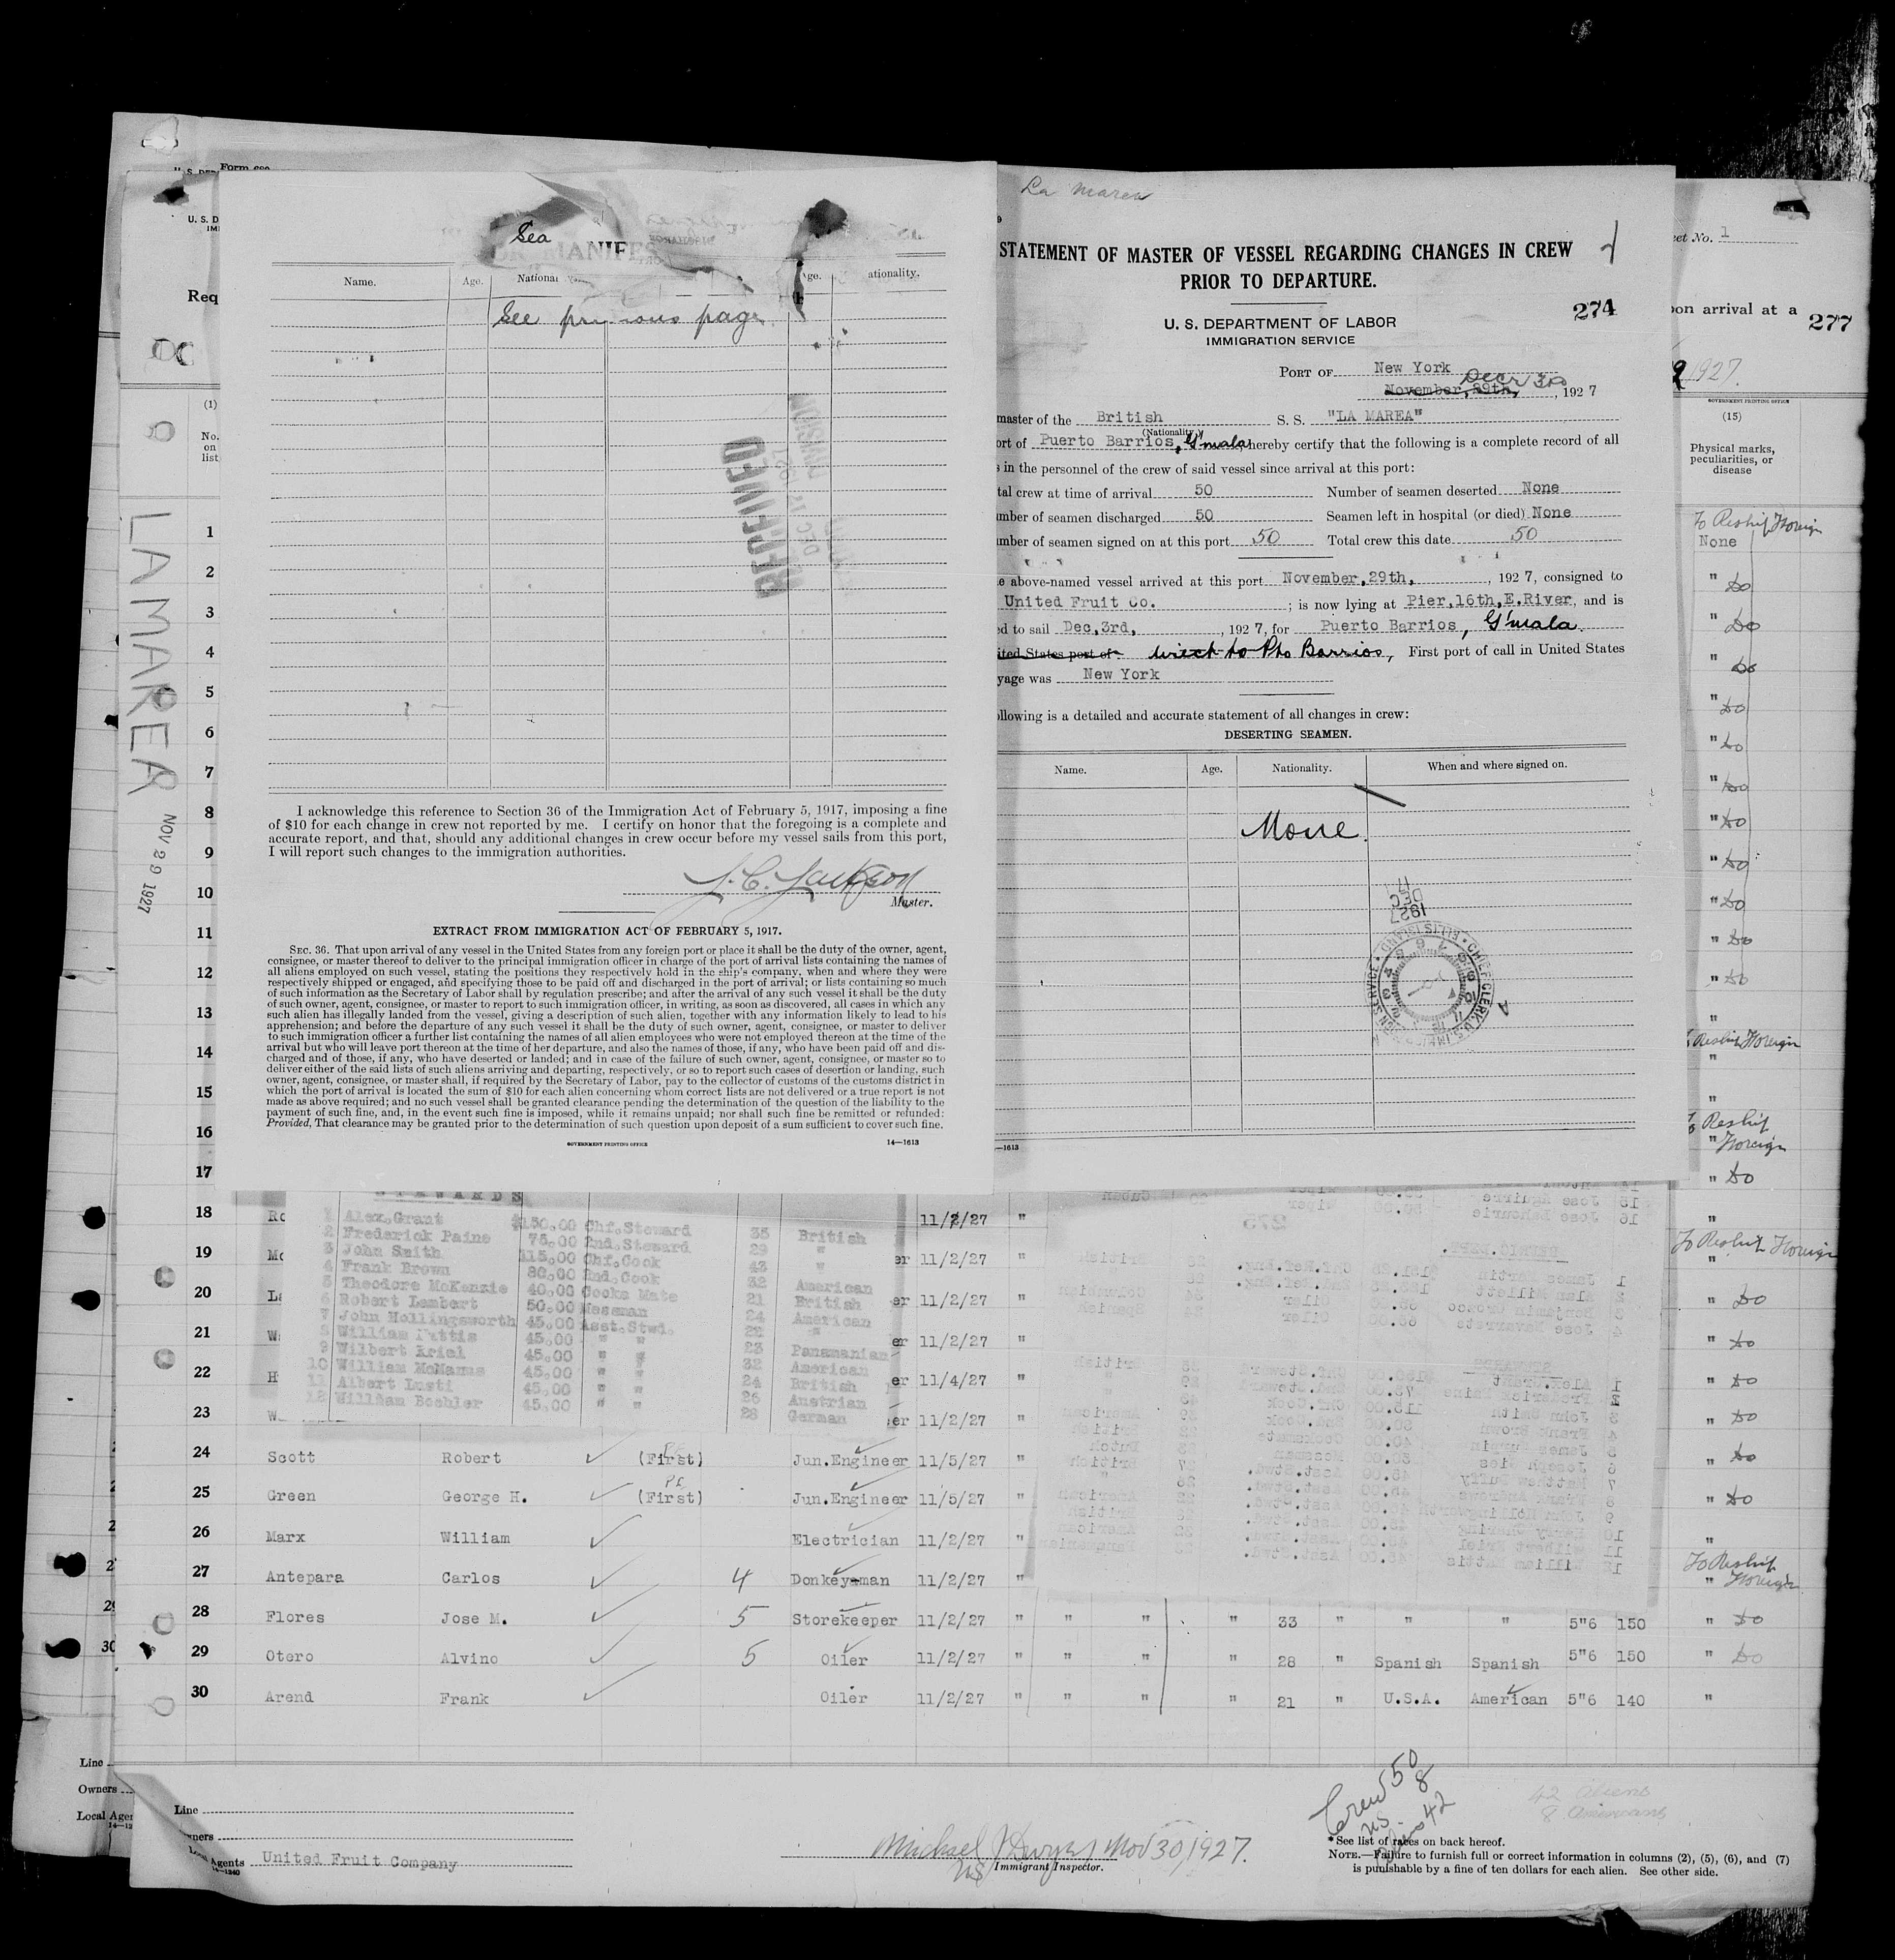 Form
U. S. D
Req
(1)
No.
on
list
LA MAREA
NOV 29 1927
Sea
MANIFES
Name. Age. National Age. ationality.
See previous page
RECEIVED
DEC 17 1927
DIVISION
I acknowledge this reference to Section 36 of the Immigration Act of February 5, 1917, imposing a fine
of $10 for each change in crew not reported by me. I certify on honor that the foregoing is a complete and
accurate report, and that, should any additional changes in crew occur before my vessel sails from this port,
I will report such changes to the immigration authorities.
J. C. Jackson
Master.
EXTRACT FROM IMMIGRATION ACT OF FEBRUARY 5, 1917.
SEC. 36. That upon arrival of any vessel in the United States from any foreign port or place it shall be the duty of the owner, agent,
consignee, or master thereof to deliver to the principal immigration officer in charge of the port of arrival lists containing the names of
all aliens employed on such vessel, stating the positions they respectively hold in the ship's company, when and where they were
respectively shipped or engaged, and specifying those to be paid off and discharged in the port of arrival; or lists containing so much
of such information as the Secretary of Labor shall by regulation prescribe; and after the arrival of any such vessel it shall be the duty
of such owner, agent, consignee, or master to report to such immigration officer, in writing, as soon as discovered, all cases in which any
such alien has illegally landed from the vessel, giving a description of such alien, together with any information likely to lead to his
apprehension; and before the departure of any such vessel it shall be the duty of such owner, agent, consignee, or master to deliver
to such immigration officer a further list containing the names of all alien employees who were not employed thereon at the time of the
arrival but who will leave port thereon at the time of her departure, and also the names of those, if any, who have been paid off and dis-
charged and of those, if any, who have deserted or landed; and in case of the failure of such owner, agent, consignee, or master so to
deliver either of the said lists of such aliens arriving and departing, respectively, or so to report such cases of desertion or landing, such
owner, agent, consignee, or master shall, if required by the Secretary of Labor, pay to the collector of customs of the customs district in
which the port of arrival is located the sum of $10 for each alien concerning whom correct lists are not delivered or a true report is not
made as above required; and no such vessel shall be granted clearance pending the determination of the question of the liability to the
payment of such fine, and, in the event such fine is imposed, while it remains unpaid; nor shall such fine be remitted or refunded:
Provided, That clearance may be granted prior to the determination of such question upon deposit of a sum sufficient to cover such fine.
GOVERNMENT PRINTING OFFICE 14—1613
La Marea
STATEMENT OF MASTER OF VESSEL REGARDING CHANGES IN CREW
PRIOR TO DEPARTURE.
274
U. S. DEPARTMENT OF LABOR
IMMIGRATION SERVICE
PORT OF New York
November, 29th, Decr 3rd, 1927
master of the British S. S. "LA MAREA"
(Nationality)
ort of Puerto Barrios, G'mala, hereby certify that the following is a complete record of all
s in the personnel of the crew of said vessel since arrival at this port:
tal crew at time of arrival 50 Number of seamen deserted None
umber of seamen discharged 50 Seamen left in hospital (or died) None
umber of seamen signed on at this port 50 Total crew this date 50
e above-named vessel arrived at this port November, 29th, , 1927, consigned to
United Fruit Co. ; is now lying at Pier, 16th, E.River, and is
ed to sail Dec, 3rd, , 1927, for Puerto Barrios, G'mala.
ited States port of direct to Pto Barrios, First port of call in United States
yage was New York
ollowing is a detailed and accurate statement of all changes in crew:
DESERTING SEAMEN.
Name. Age. Nationality. When and where signed on.
None
1927
DEC
17
CHIEF CLERK, U.S. IMMIGRATION SERVICE • ELLIS ISLAND •
—1613
eet No. 1
on arrival at a 277
1927.
GOVERNMENT PRINTING OFFICE
(15)
Physical marks,
peculiarities, or
disease
To Reship Foreign
None
" Do
" Do
" Do
" Do
" Do
" Do
" Do
" Do
" Do
" Do
" Do
"
Reship Foreign
"
"
To Reship
" Foreign
" Do
"
To Reship Foreign
"
" Do
" Do
" Do
" Do
" Do
" Do
"
To Reship
" Foreign
1
2
3
4
5
6
7
8
9
10
11
12
13
14
15
16
17
STEWARDS
1 Alex.Grant $150.00 Chf.Steward 35 British
2 Frederick Paine 75.00 2nd.Steward 29 "
3 John Smith 115.00 Chf.Cook 43 "
4 Frank Brown 80.00 2nd.Cook 32 American
5 Theodore McKenzie 40.00 Cooks Mate 21 British
6 Robert Lambert 50.00 Messman 24 American
7 John Hollingsworth 45.00 Asst.Stwd. 22 "
8 William Pattis 45.00 " " 23 Panamanian
9 Wilbert Kriel 45.00 " " 32 American
10 William McManus 45.00 " " 24 British
11 Albert Lusti 45.00 " " 26 Austrian
12 William Boehler 45.00 " " 28 German
18 Ro 11/2/27 "
19 Mc er 11/2/27 "
20 er 11/2/27 "
21 W er 11/2/27 "
22 H er 11/4/27 "
23 W er 11/2/27 "
24 Scott Robert (First) Jun.Engineer 11/5/27 "
25 Green George H. (First) Jun.Engineer 11/5/27 "
26 Marx William Electrician 11/2/27 "
27 Antepara Carlos 4 Donkey-man 11/2/27 "
28 Flores Jose M. 5 Storekeeper 11/2/27 " " " " 33 " " " 5"6 150 " Do
29 Otero Alvino 5 Oiler 11/2/27 " " " " 28 " Spanish Spanish 5"6 150 " Do
30 Arend Frank Oiler 11/2/27 " " " " 21 " U.S.A. American 5"6 140 "
Crew 50
US 8
Aliens 42
42 aliens
8 Americans
Line
Owners
Local Agen
Line
wners
Local Agents United Fruit Company
14—1240
Michael J Dwyer Nov 30, 1927.
US Immigrant Inspector.
*See list of races on back hereof.
NOTE.—Failure to furnish full or correct information in columns (2), (5), (6), and (7)
is punishable by a fine of ten dollars for each alien. See other side.